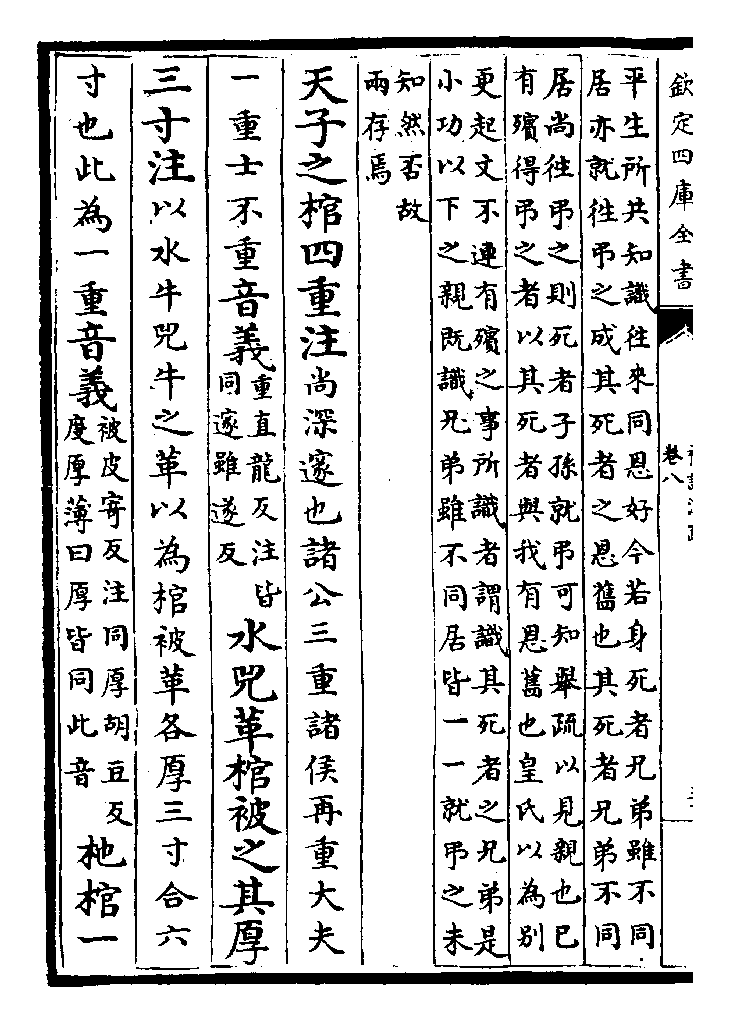 欽定四庫全書
卷八
平生所共知識往來同恩好今若身死者兄弟雖不同
居亦就往弔之成其死者之恩舊也其死者兄弟不同
居尚往弔之則死者子孫就弔可知舉疏以見親也已
有殯得弔之者以其死者與我有恩舊也皇氏以為別
更起文不連有殯之事所識者謂識其死者之兄弟是
小功以下之親既識兄弟雖不同居皆一一就弔之未
知然否故
兩存焉
天子之棺四重注尚深邃也諸公三重諸侯再重大夫
一重士不重音義重直龍反注皆同邃雖遂反水兕革棺被之其厚
三寸注以水牛兕牛之革以為棺被革各厚三寸合六
寸也此為一重音義被皮寄反注同厚胡豆反度厚薄曰厚皆同此音杝棺一